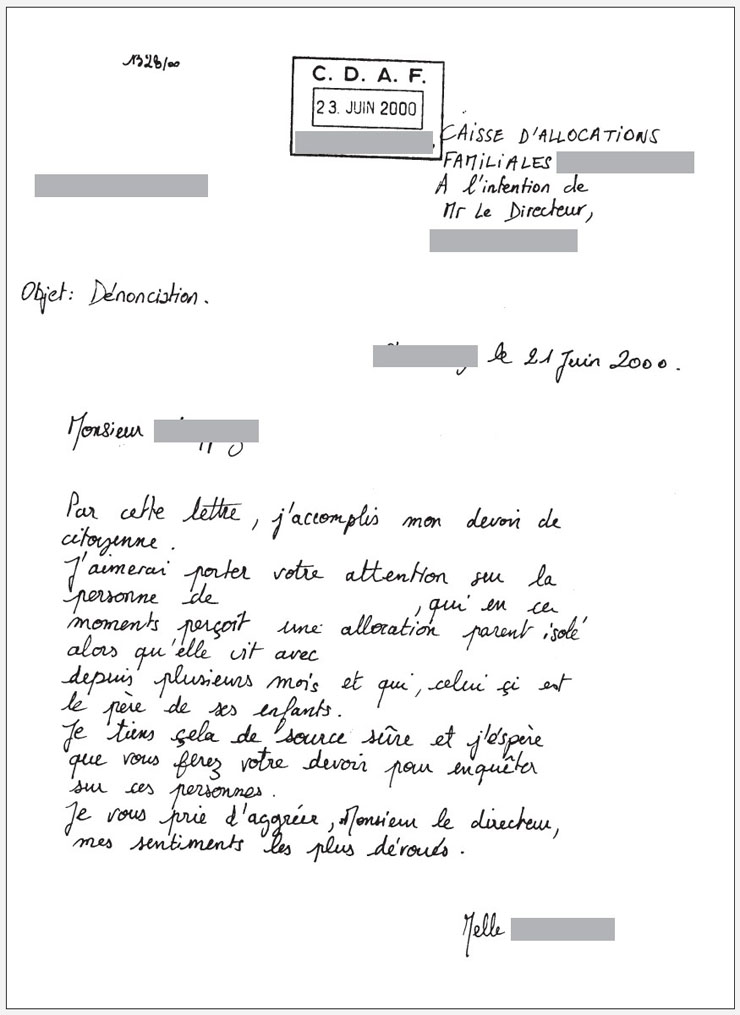 1328/00
C. D. A. F.
23. JUIN 2000
CAISSE D'ALLOCATIONS
FAMILIALES
A l'intention de
Mr Le Directeur,
Objet: Dénonciation.
le 21 Juin 2000.
Monsieur
Par cette lettre, j'accomplis mon devoir de
citoyenne.
J'aimerai porter votre attention sur la
personne de , qui en ces
moments perçoit une allocation parent isolé
alors qu'elle vit avec
depuis plusieurs mois et qui, celui çi est
le père de ses enfants.
Je tiens çela de source sûre et j'éspère
que vous ferez votre devoir pour enquêter
sur ces personnes.
Je vous prie d'aggréer, Monsieur le directeur,
mes sentiments les plus dévoués.
Melle